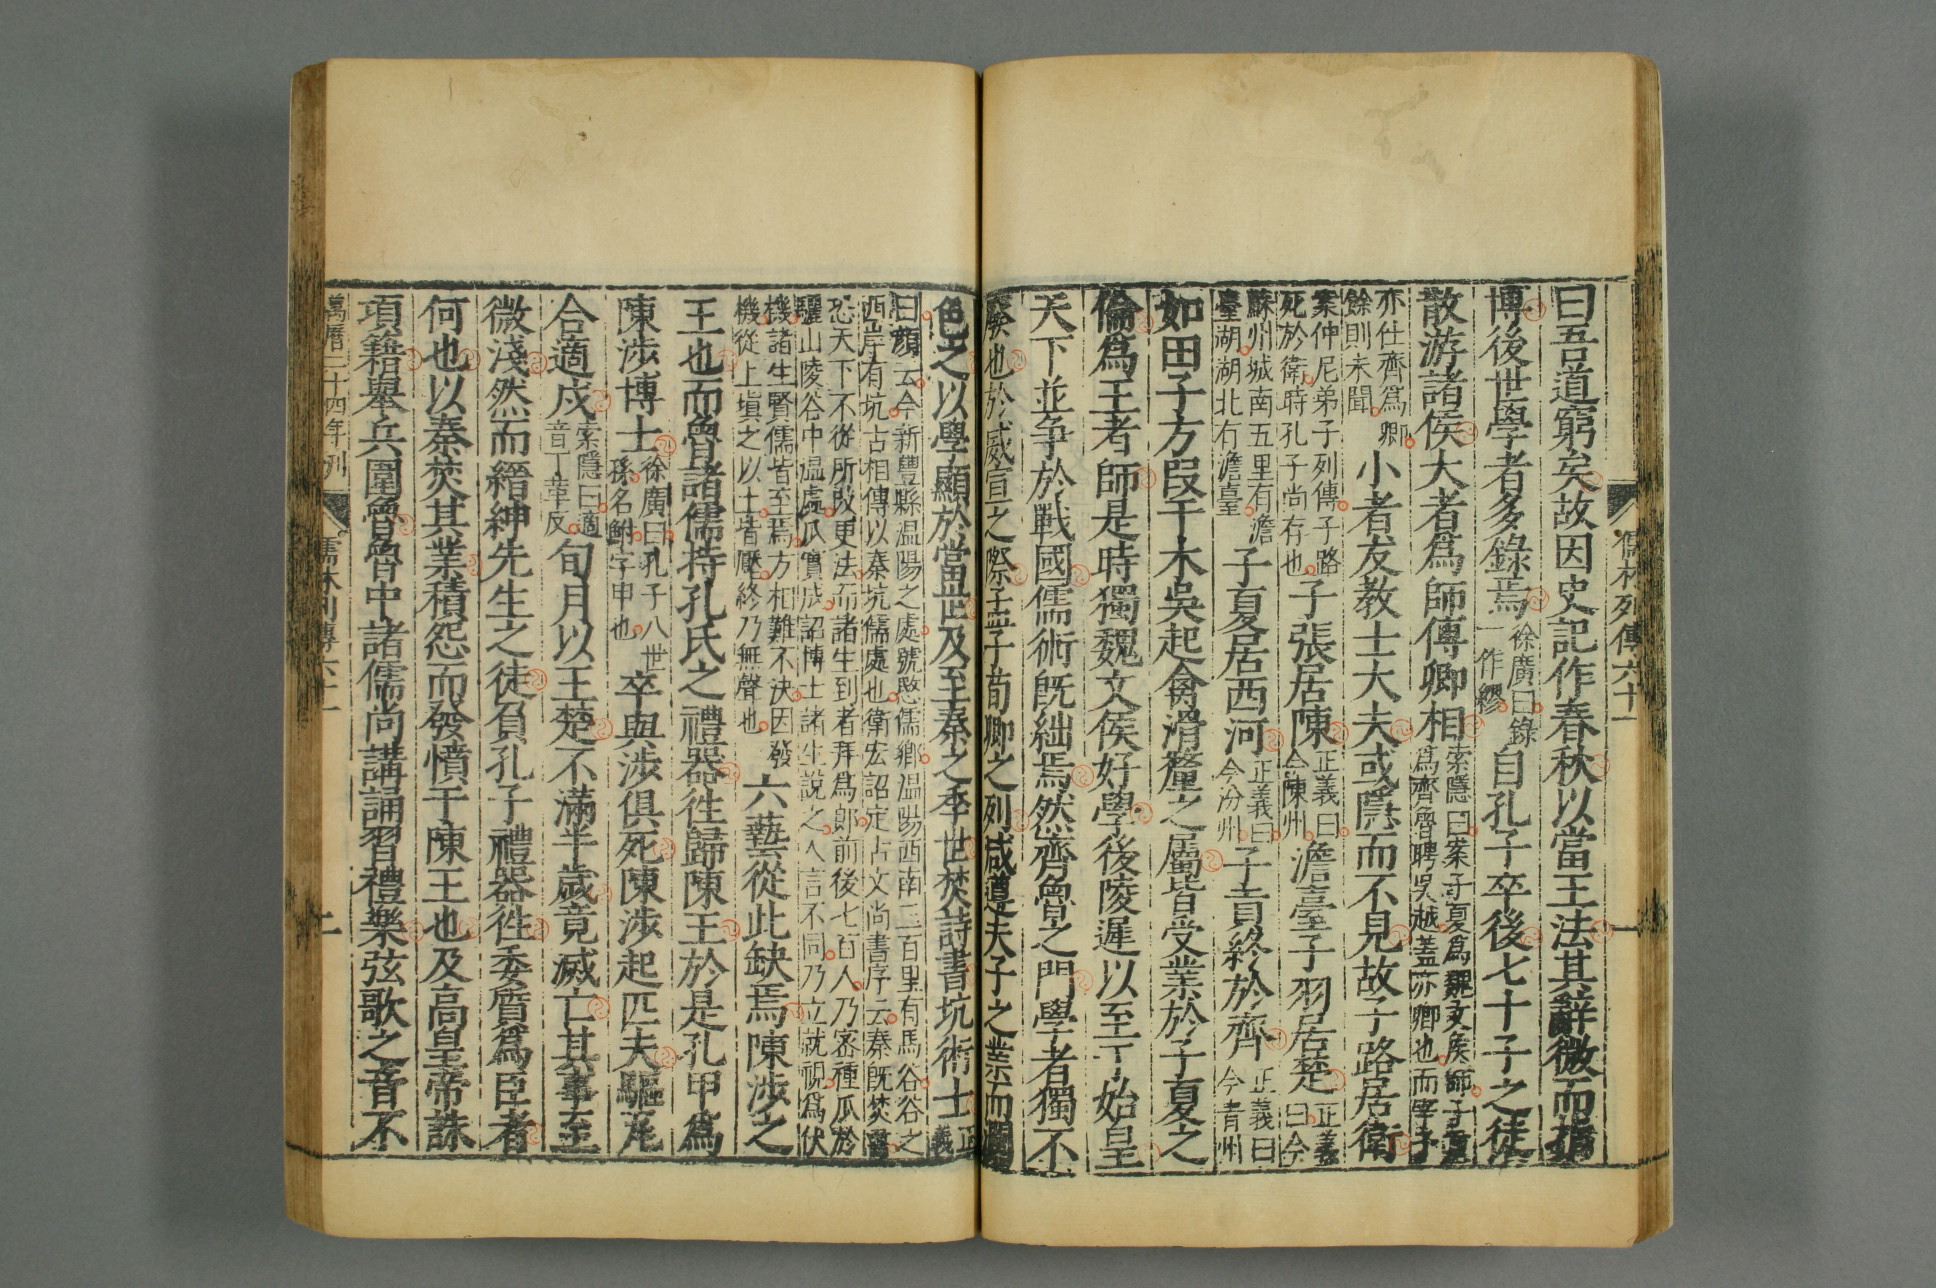 儒林列傳六十一
一
曰吾道窮矣故因史記作春秋以當王法其辭微而指
博後世學者多錄焉徐廣曰錄一作繆自孔子卒後七十子之徒
散游諸侯大者爲師傅卿相索隱曰案子夏爲魏文侯師子貢爲齊魯聘吳越蓋亦卿也而宰予
亦仕齊爲卿餘則未聞小者友教士大夫或隱而不見故子路居衛
案仲尼弟子列傳子路死於衛時孔子尚存也子張居陳正義曰今陳州澹臺子羽居楚正義曰今
蘇州城南五里有澹臺湖湖北有澹臺子夏居西河正義曰今汾州子貢終於齊正義曰今青州
如田子方段干木吳起禽滑釐之屬皆受業於子夏之
倫爲王者師是時獨魏文侯好學後陵遲以至于始皇
天下並爭於戰國儒術既絀焉然齊魯之門學者獨不
廢也於威宣之際孟子荀卿之列咸遵夫子之業而潤
色之以學顯於當世及至秦之季世焚詩書坑術士正義
曰顏云今新豐縣温陽之處號愍儒鄉温陽西南三百里有馬谷谷之
西岸有坑古相傳以秦坑儒處也衛宏詔定古文尚書序云秦既焚書
恐天下不從所改更法而諸生到者拜爲郎前後七百人乃密種瓜於
驪山陵谷中温處瓜實成詔博士諸生說之人言不同乃立就視爲伏
機諸生賢儒皆至焉方相難不決因發機從上塡之以土皆壓終乃無聲也六藝從此缺焉陳涉之
王也而魯諸儒持孔氏之禮器徃歸陳王於是孔甲爲
陳涉博士徐廣曰孔子八世孫名鮒字甲也卒與涉俱死陳涉起匹夫驅瓦
合適戍索隱曰適音丁革反旬月以王楚不滿半歲竟滅亡其事至
微淺然而縉紳先生之徒負孔子禮器徃委質爲臣者
何也以秦焚其業積怨而發憤于陳王也及高皇帝誅
項籍舉兵圍魯魯中諸儒尚講誦習禮樂弦歌之音不
萬曆二十四年刋
儒林列傳六十一
二